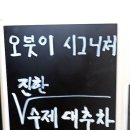 오붓이 시그니처
진한
수제 대추차